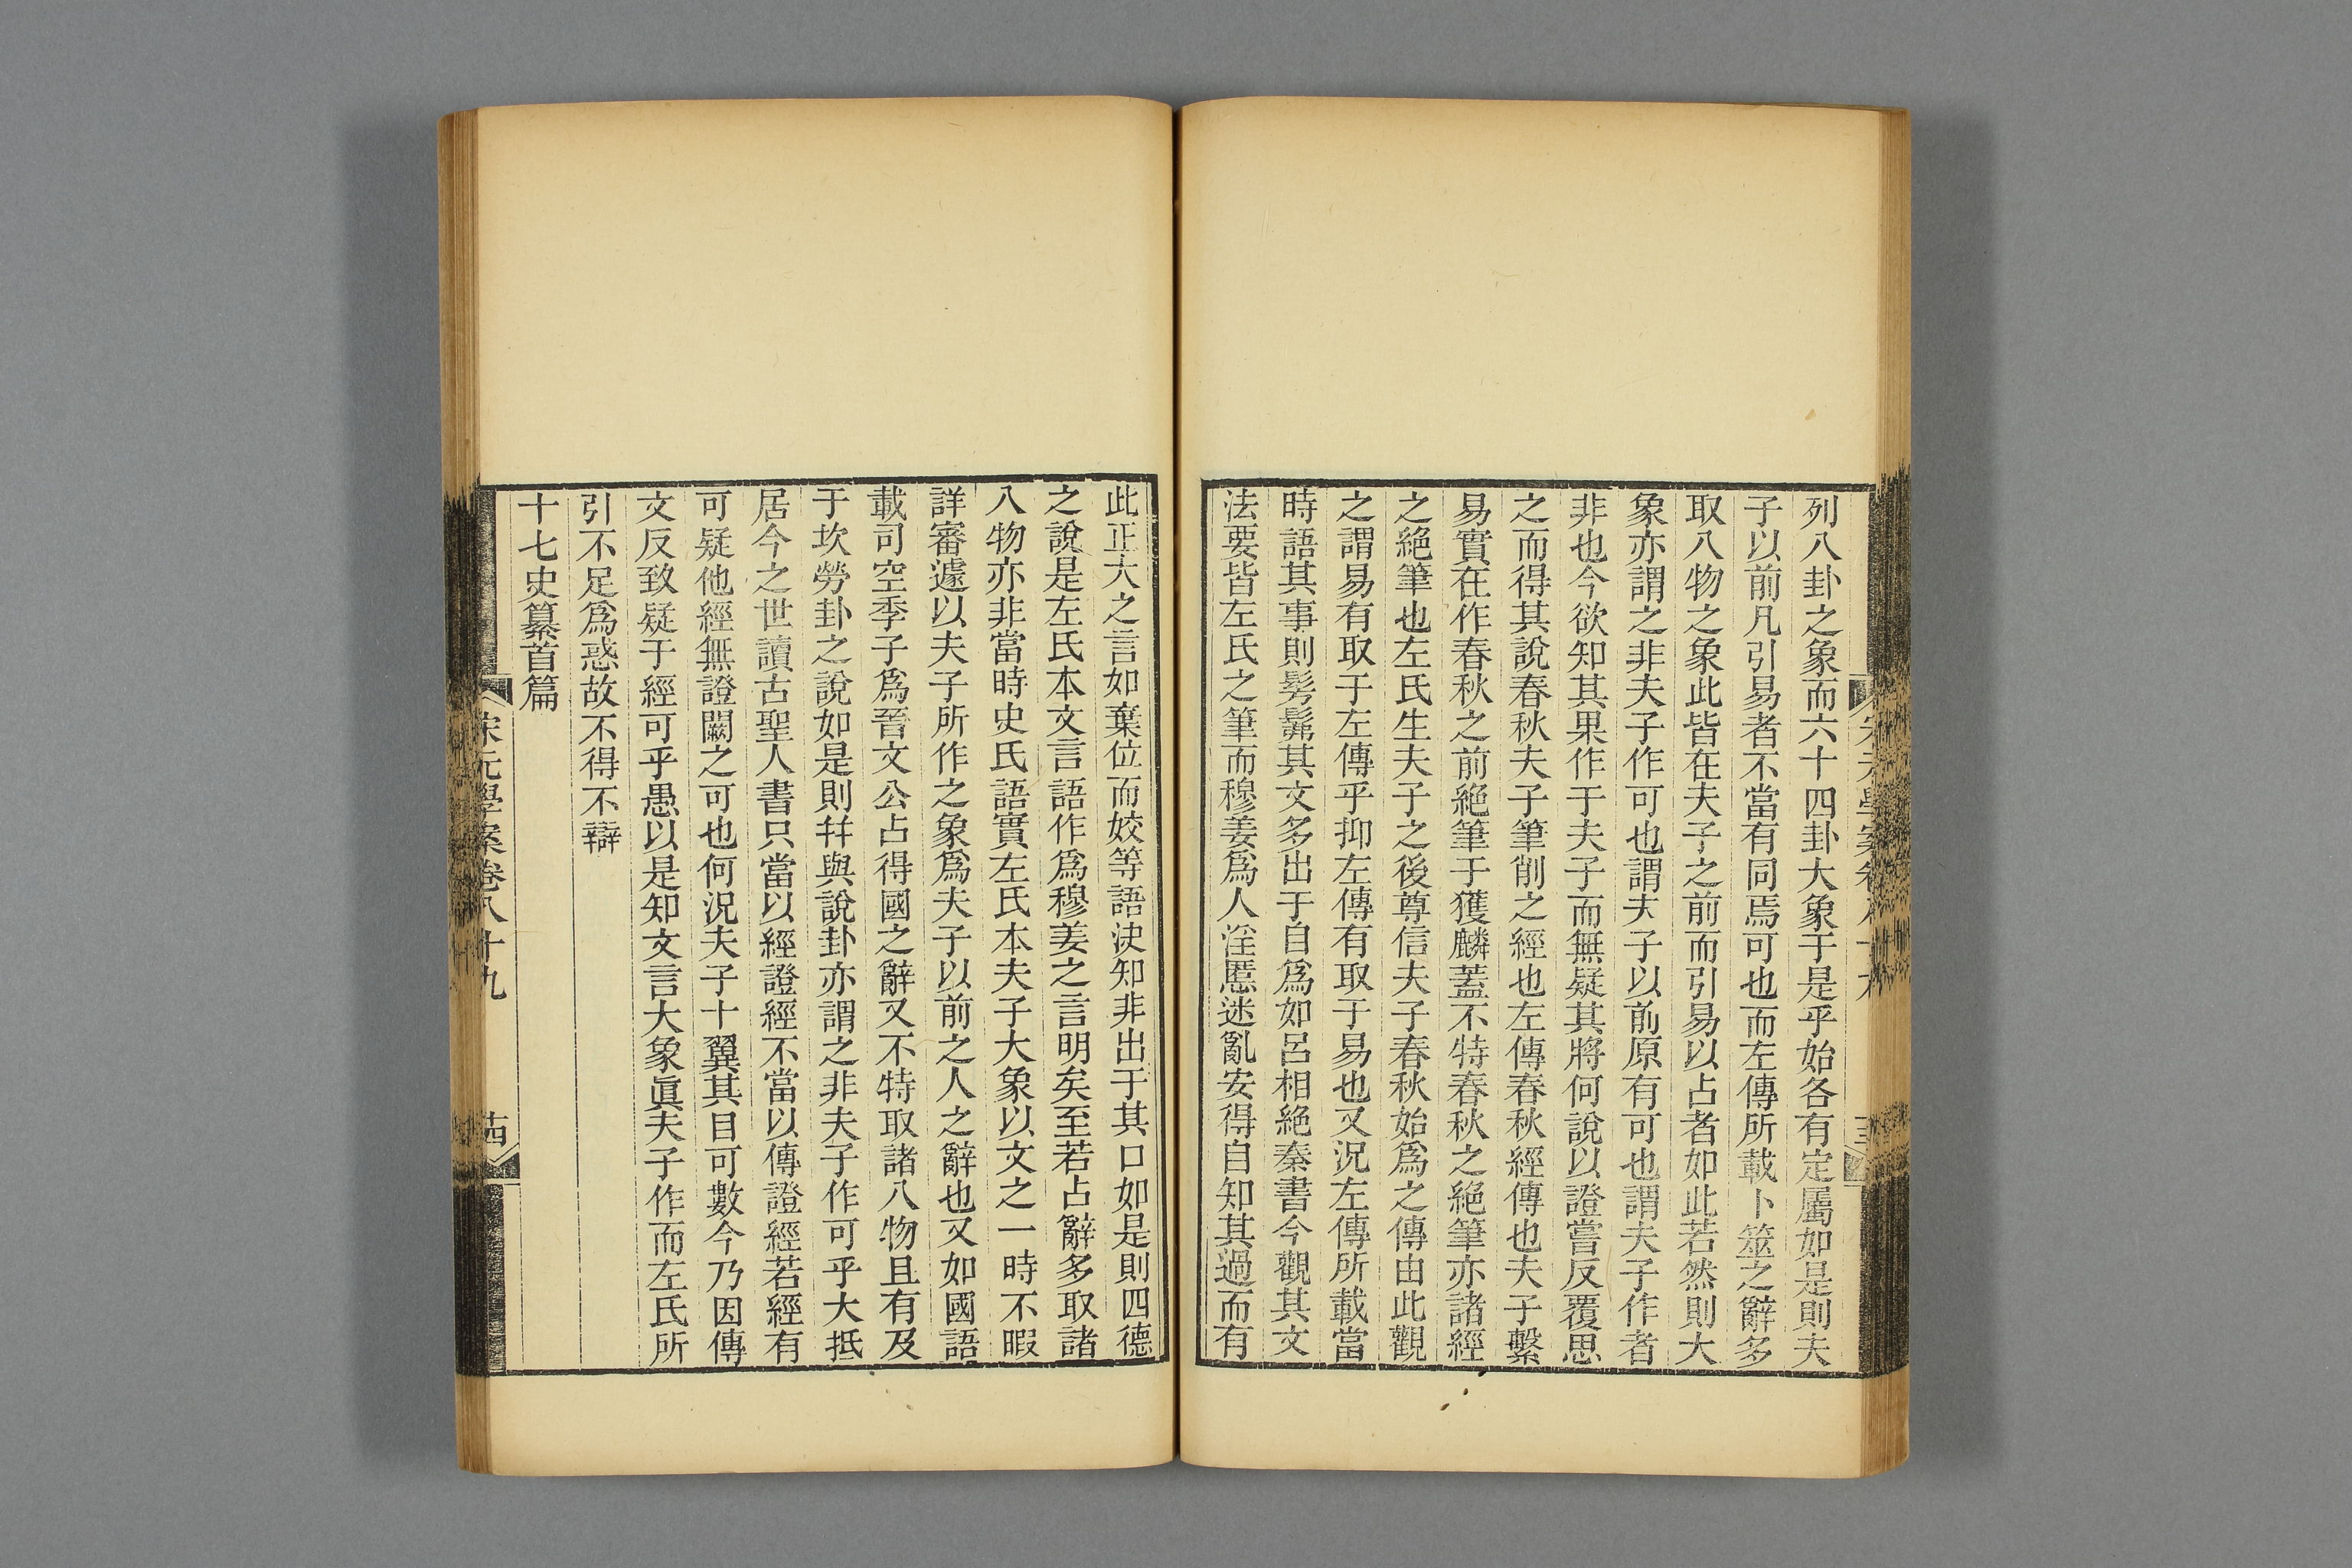 列八卦之象而六十四卦大象于是乎始各有定屬如是則夫
子以前凡引易者不當有同焉可也而左傳所載卜筮之辭多
取八物之象此皆在夫子之前而引易以占者如此若然則大
象亦謂之非夫子作可也謂夫子以前原有可也謂夫子作者
非也今欲知其果作于夫子而無疑其將何說以證嘗反覆思
之而得其說春秋夫子筆削之經也左傳春秋經傳也夫子繫
易實在作春秋之前絕筆于獲麟蓋不特春秋之絕筆亦諸經
之絕筆也左氏生夫子之後尊信夫子春秋始爲之傳由此觀
之謂易有取于左傳乎抑左傳有取于易也又況左傳所載當
時語其事則髣髴其文多出于自爲如呂相絕秦書今觀其文
法要皆左氏之筆而穆姜爲人淫慝迷亂安得自知其過而有
此正大之言如棄位而姣等語決知非出于其口如是則四德
之說是左氏本文言語作爲穆姜之言明矣至若占辭多取諸
八物亦非當時史氏語實左氏本夫子大象以文之一時不暇
詳審遽以夫子所作之象爲夫子以前之人之辭也又如國語
載司空季子爲晉文公占得國之辭又不特取諸八物且有及
于坎勞卦之說如是則并與說卦亦謂之非夫子作可乎大抵
居今之世讀古聖人書只當以經證經不當以傳證經若經有
可疑他經無證闕之可也何況夫子十翼其目可數今乃因傳
文反致疑于經可乎愚以是知文言大象眞夫子作而左氏所
引不足爲惑故不得不辯
十七史纂首篇
宋元學案卷八十九
十四